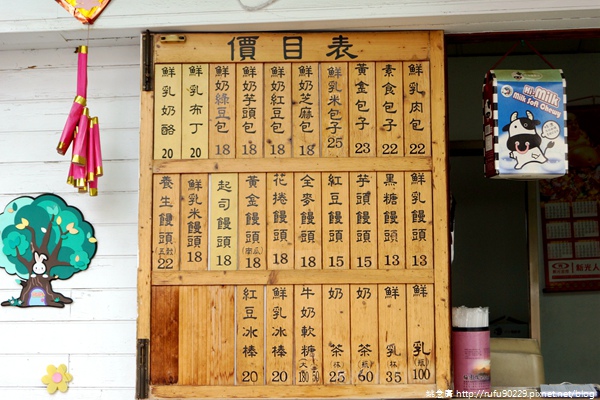 價目表
鮮乳肉包 22
素食包子 22
黃金包子 23
鮮乳米包子 25
鮮奶芝麻包 18
鮮奶紅豆包 18
鮮奶芋頭包 18
鮮奶綠豆包 18
鮮乳布丁 20
鮮乳奶酪 20
鮮乳饅頭 13
黑糖饅頭 13
芋頭饅頭 15
紅豆饅頭 15
全麥饅頭 18
花捲饅頭 18
黃金饅頭(南瓜) 18
起司饅頭 18
鮮乳米饅頭 18
養生饅頭(五穀) 22
鮮乳(瓶) 100
鮮乳(杯) 35
奶茶(瓶) 60
奶茶(杯) 25
牛奶軟糖(大)130(小)50
鮮乳冰棒 20
紅豆冰棒 20
Milk
Milk Soft Chewy
http://rufu90229.pixnet.net/blog